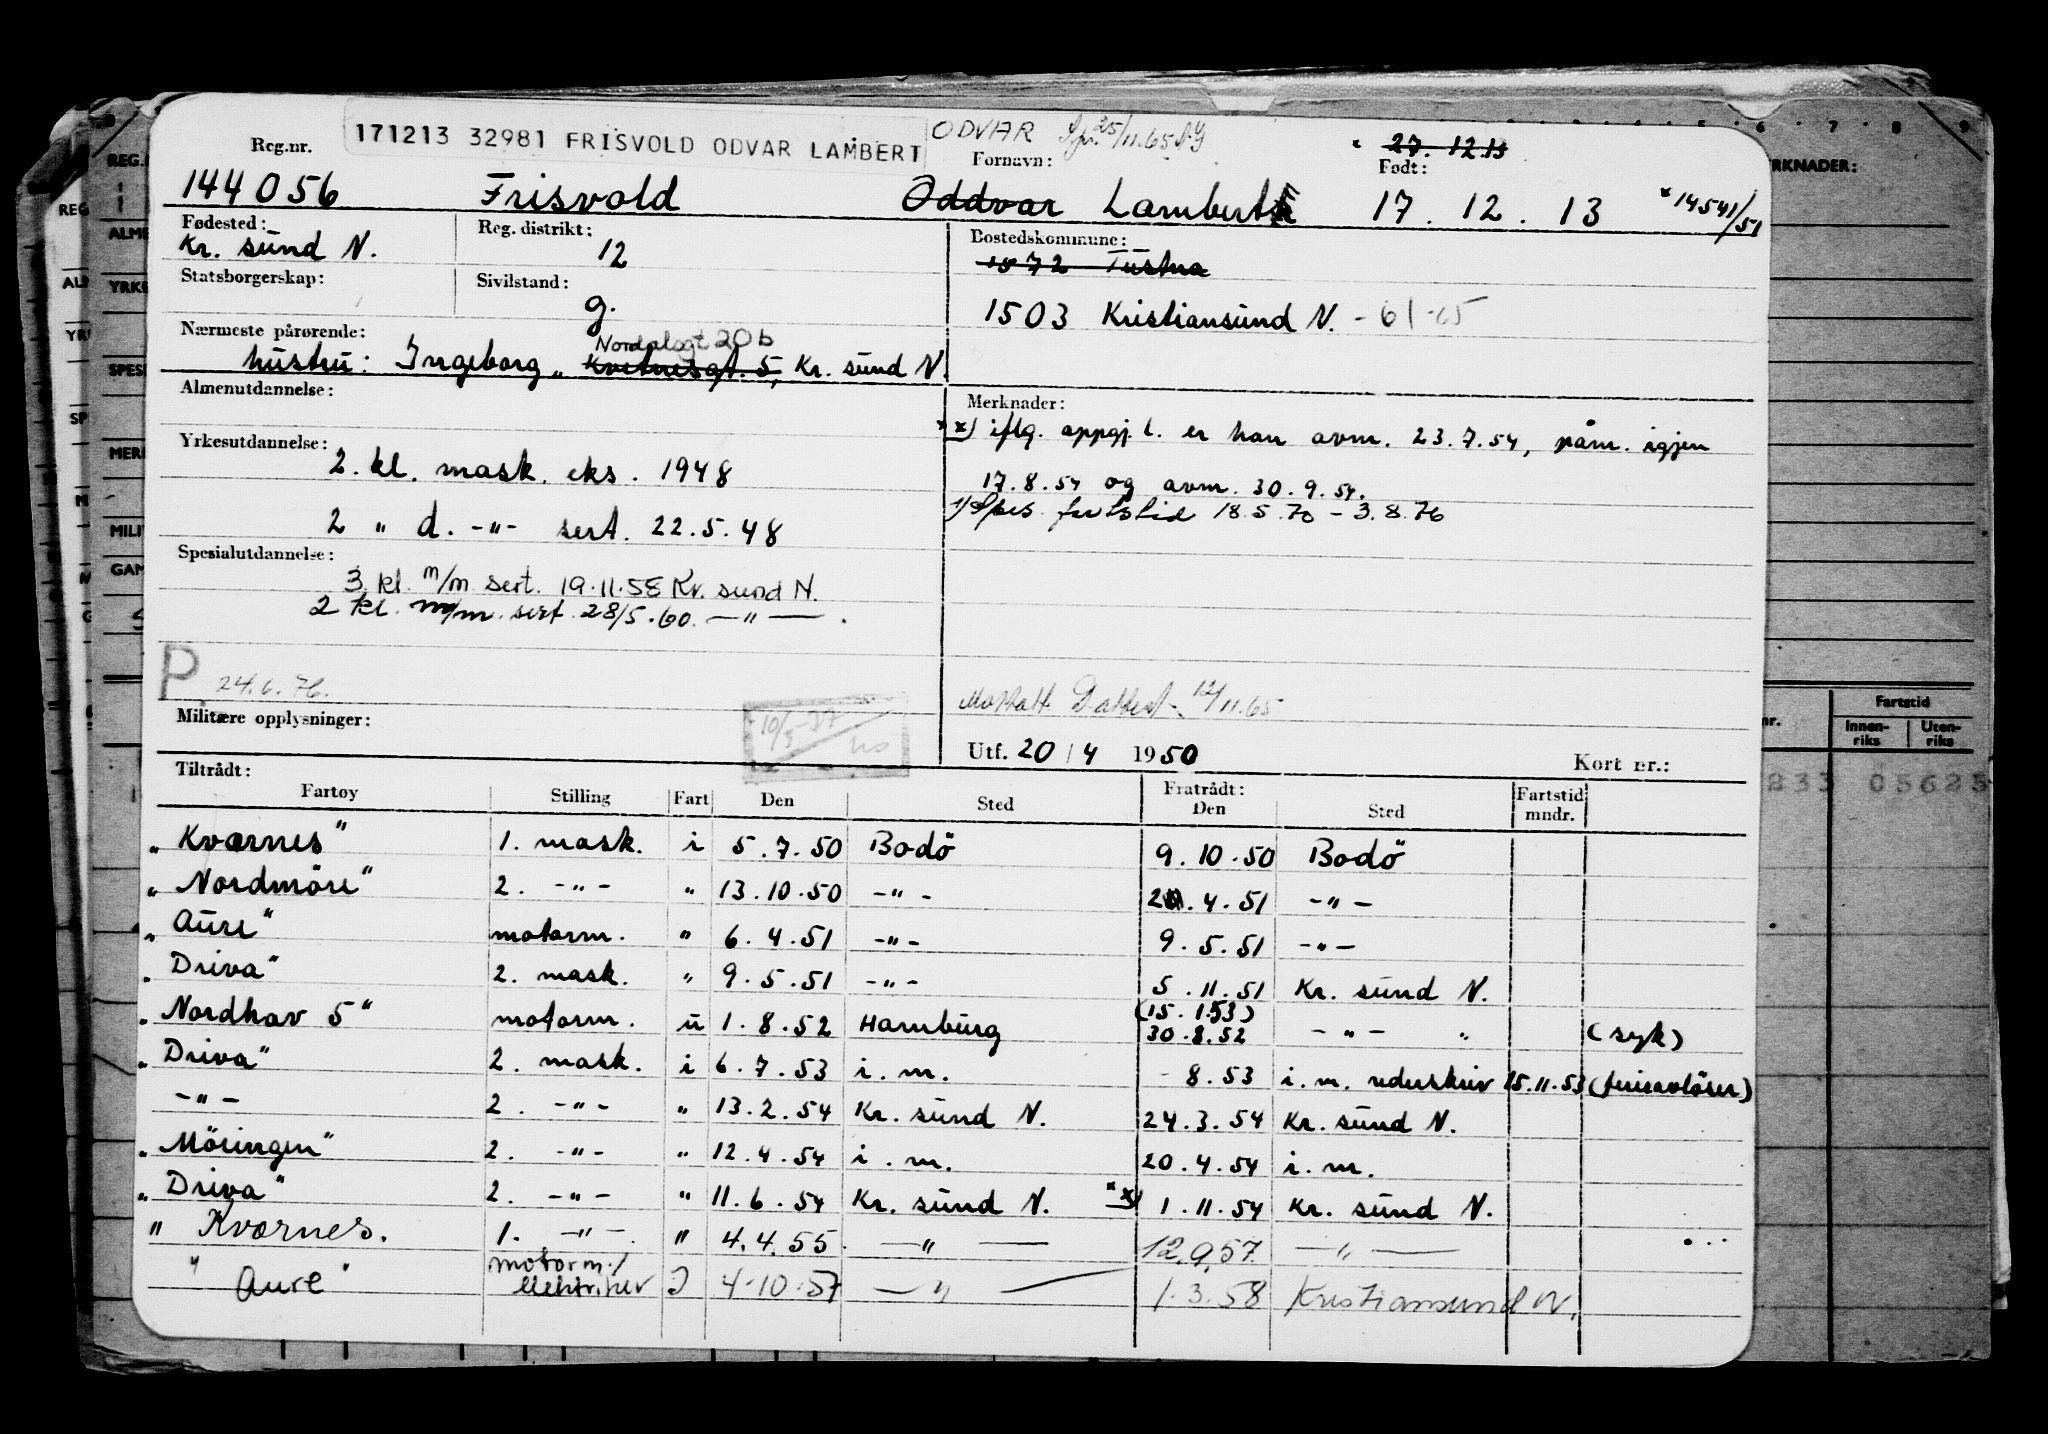 171213 32981 FRISVOLD ODVAR LAMBERT
ODVAR 25/11.65
27.12.13
Reg.nr. Fornavn: Født:
144056 Frisvold Oddvar Lambert 17.12.13 *14541/51
Fødested: Reg. distrikt: Bostedskommune:
Kr. sund N. 12 1572 Tustna
Statsborgerskap: Sivilstand:
g. 1503 Kristiansund N. - 61-65
Nærmeste pårørende:
Nordalsgt 20b
hustru: Ingeborg „ Kvitnesgt. 5, Kr. sund N.
Almenutdannelse: Merknader:
*x) iflg. oppgj. l. er han avm. 23.7.54, påm. igjen
Yrkesutdannelse:
2. kl. mask. eks. 1948
17.8.54 og avm. 30.9.54.
1) Spes. fartstid 18.5.70 - 3.8.76
2 „ d. -"- sert. 22.5.48
Spesialutdannelse:
3 kl. m/m sert. 19.11.58 Kr. sund N.
2 kl. m/m. sert. 28/5.60. —"—.
P 24.6.76.
12/11.65
Militære opplysninger: 10/5-57
Utf. 20/4 1950 Kort nr.:
Tiltrådt: Fratrådt:
Fartøy Stilling Fart Den Sted Den Sted Fartstid mndr.
„Kvernes" 1. mask. i 5.7.50 Bodö 9.10.50 Bodö
„Nordmöre" 2. -"- " 13.10.50 -"- .4.51 -"-
„Aure" motorm. " 6.4.51 -"- 9.5.51 -"-
„Driva" 2. mask. " 9.5.51 -"- 5.11.51 Kr. sund N.
(15.1.53)
„Nordhav 5" motorm. u 1.8.52 Hamburg 30.8.52 -"- " (syk)
„Driva" 2. mask. i 6.7.53 i.m. - 8.53 i.m. rederskriv 15.11.53 (ferieavlöser)
-"- 2. -"- " 13.2.54 Kr. sund N. 24.3.54 Kr. sund N.
„Möringen" 2. -"- " 12.4.54 i.m. 20.4.54 i.m.
„Driva" 2. -"- " 11.6.54 Kr. sund N. *x) 1.11.54 Kr. sund N.
" Kvernes. 1. -"- " 4.4.55. —"— 12.9.57. —"—
" Aure" motorm./elektriker I 4.10.57 —"— 1.3.58 Kristiansund N.
REG.
ALM
YRKE
SPES
MER
MILI
GAM
RKNADER:
6 7 8 9
nr. Fartstid
Innenriks Utenriks
233 05625